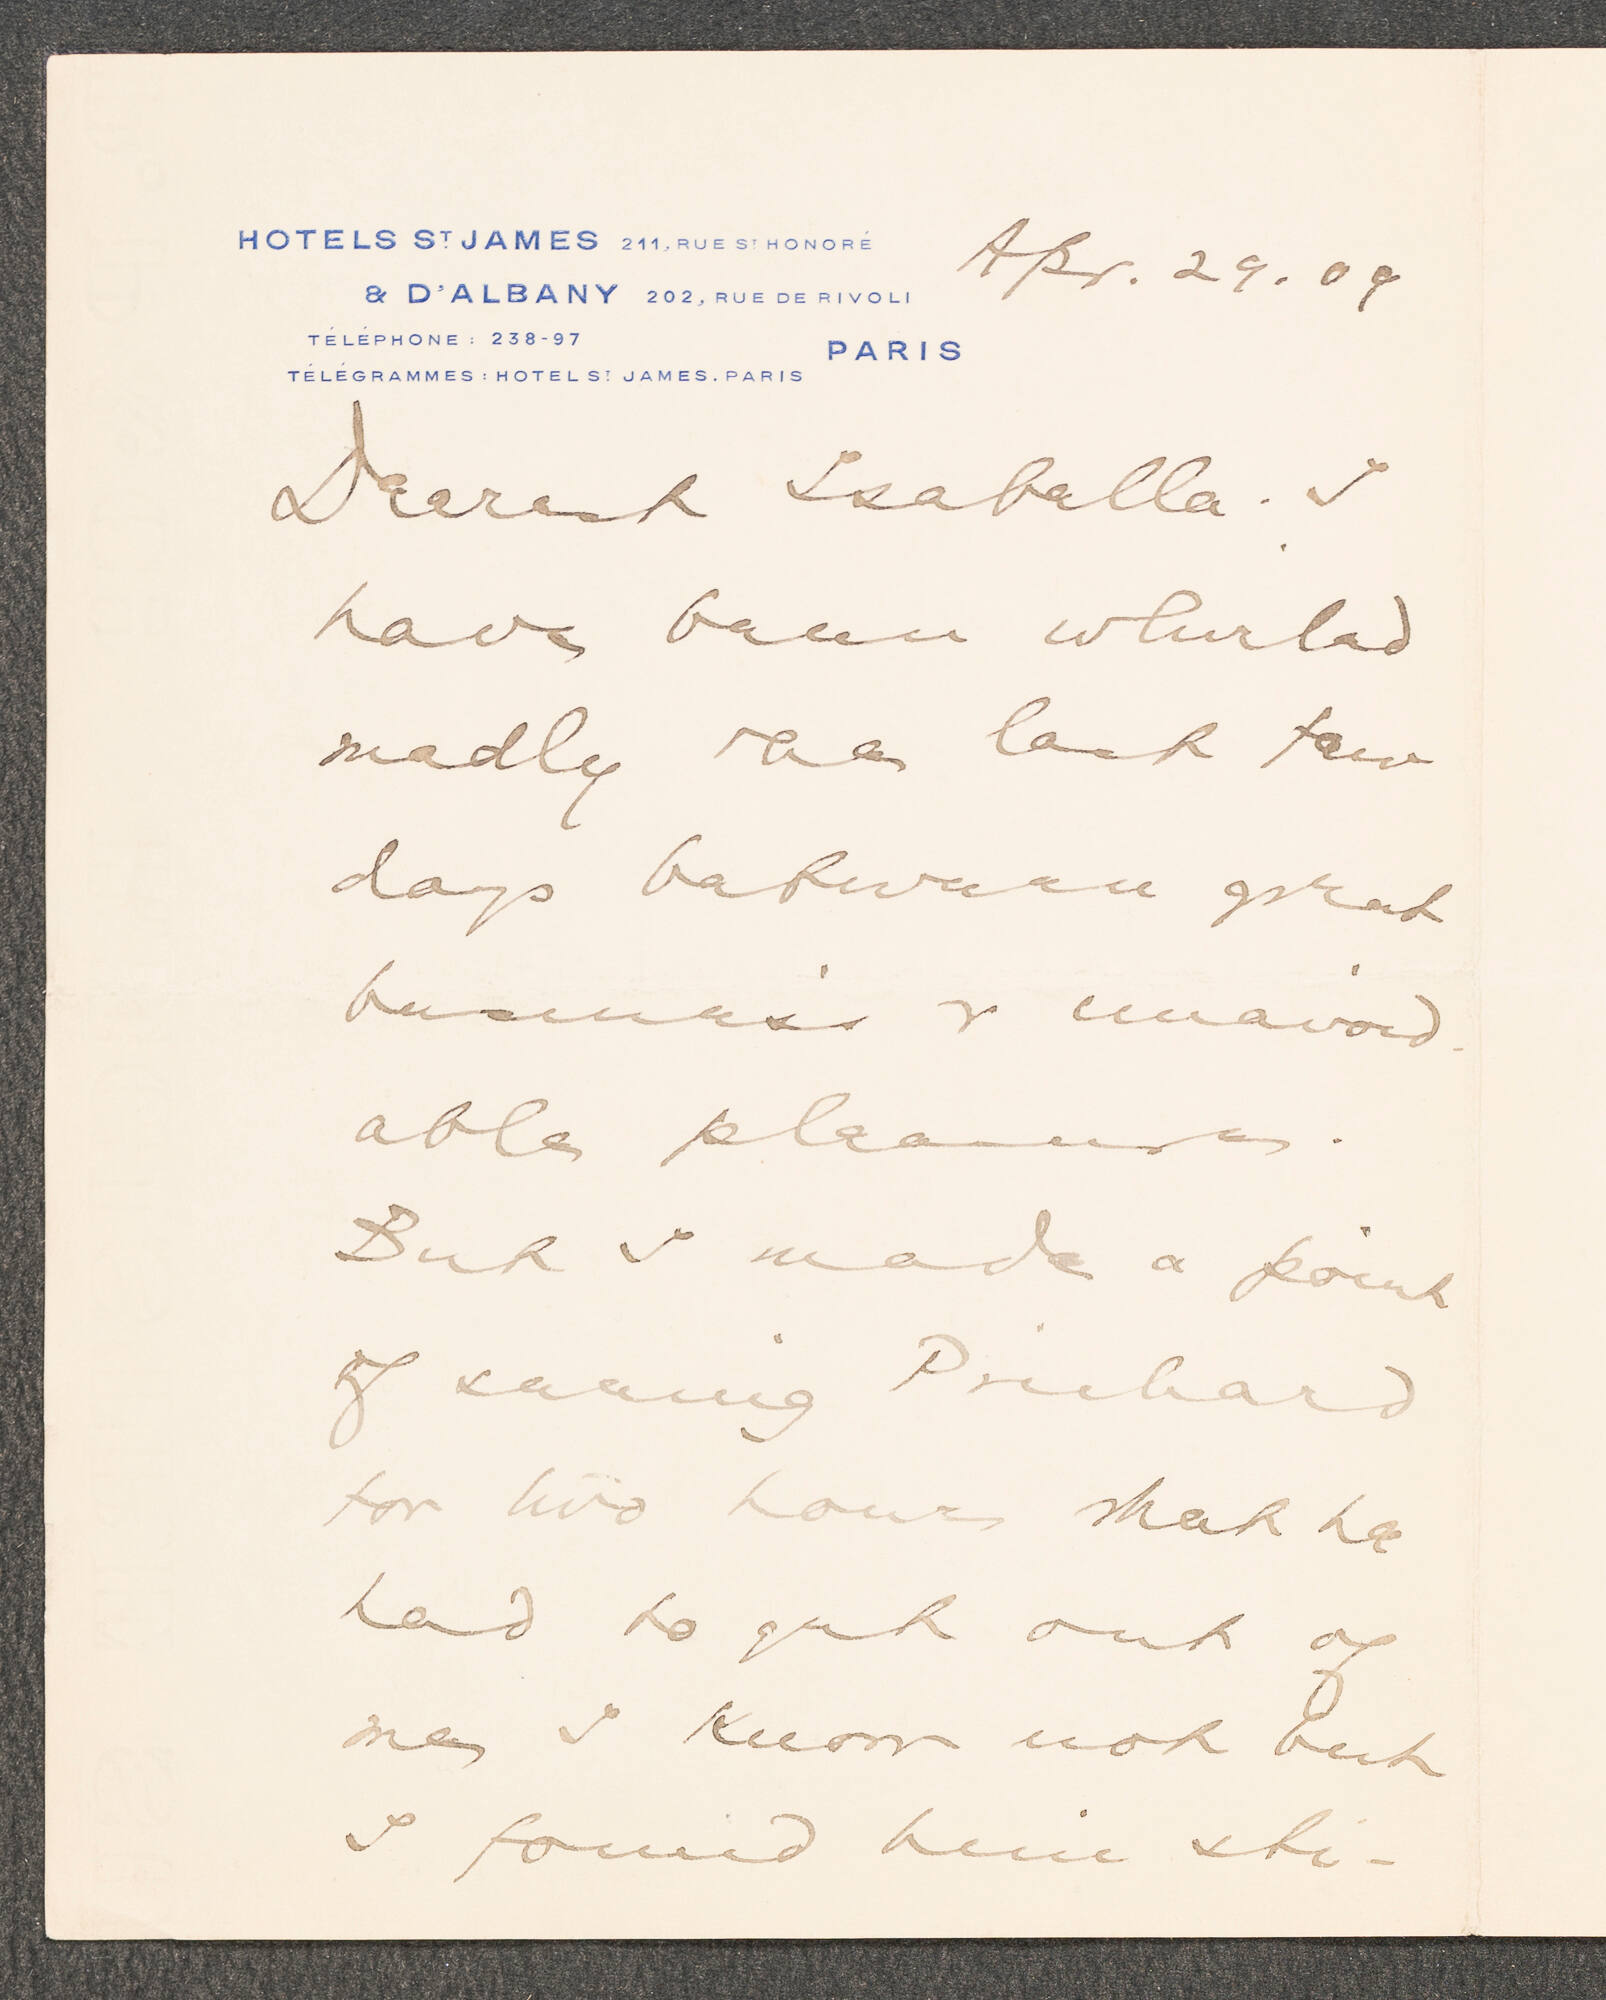 HOTELS ST JAMES 211, RUE ST HONORÉ
& D'ALBANY 202, RUE DE RIVOLI
TÉLÉPHONE : 238-97
PARIS
TÉLÉGRAMMES : HOTEL ST JAMES. PARIS
Apr. 29. 09
Dearest Isabella. I
have been whirled
madly these last few
days between great
business & unavoid-
able pleasures.
But I made a point
of seeing Prichard
for two hours. What he
had to get out of
me I know not but
I found him sti-